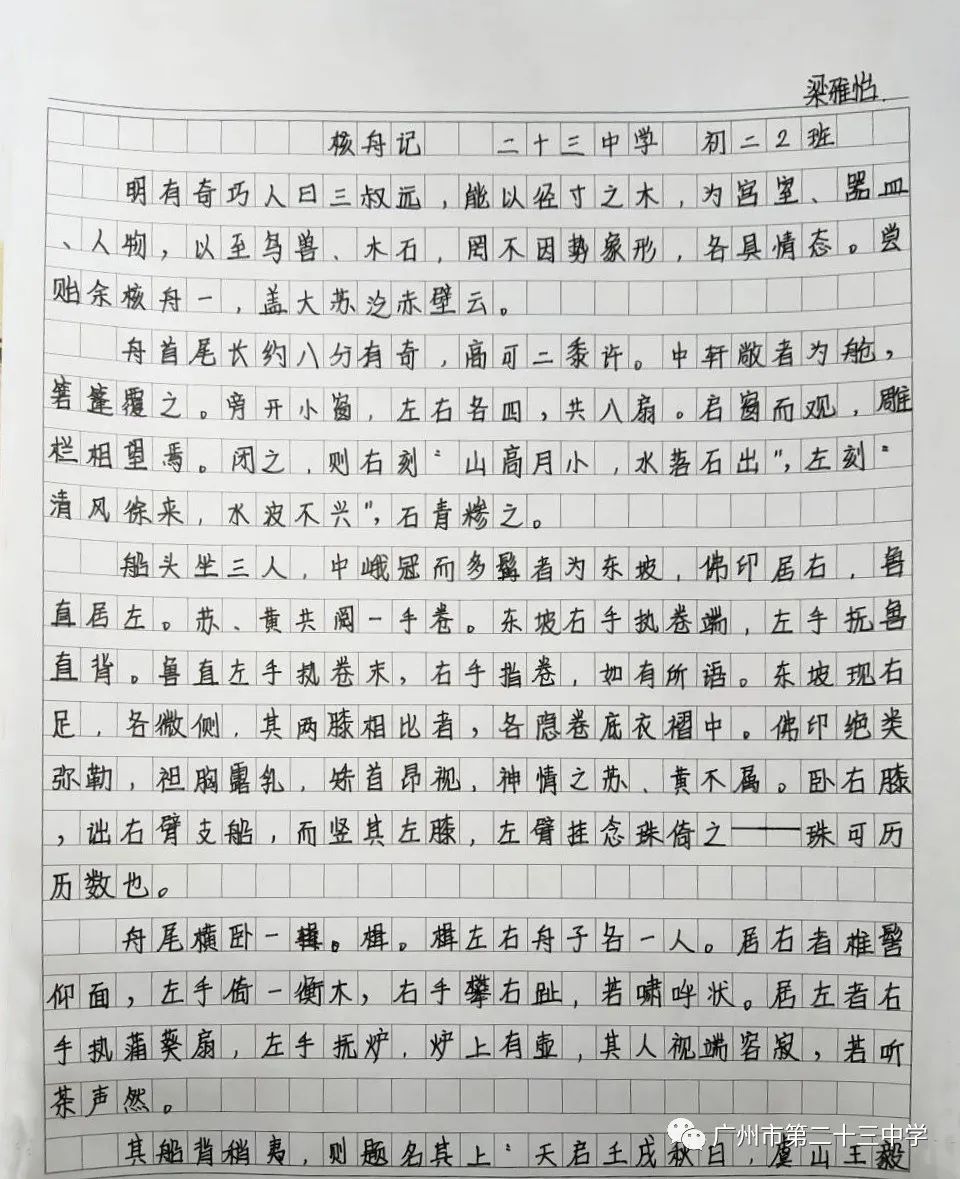 梁雅怡.
核舟记 二十三中学 初二2班
明有奇巧人曰三叔远，能以径寸之木，为宫室、器皿
、人物，以至鸟兽、木石，罔不因势象形，各具情态。尝
贻余核舟一，盖大苏泛赤壁云。
舟首尾长约八分有奇，高可二黍许。中轩敞者为舱，
箬篷覆之。旁开小窗，左右各四，共八扇。启窗而观，雕
栏相望焉。闭之，则右刻“山高月小，水落石出”，左刻“
清风徐来，水波不兴”，石青糁之。
船头坐三人，中峨冠而多髯者为东坡，佛印居右，鲁
直居左。苏、黄共阅一手卷。东坡右手执卷端，左手抚鲁
直背。鲁直左手执卷末，右手指卷，如有所语。东坡现右
足，各微侧，其两膝相比者，各隐卷底衣褶中。佛印绝类
弥勒，袒胸露乳，矫首昂视，神情之苏、黄不属。卧右膝
，诎右臂支船，而竖其左膝，左臂挂念珠倚之——珠可历
历数也。
舟尾横卧一楫。楫。楫左右舟子各一人。居右者椎髻
仰面，左手倚一衡木，右手攀右趾，若啸呼状。居左者右
手执蒲葵扇，左手抚炉，炉上有壶，其人视端容寂，若听
茶声然。
其船背稍夷，则题名其上“天启壬戌秋日，虞山王毅
广州市第二十三中学